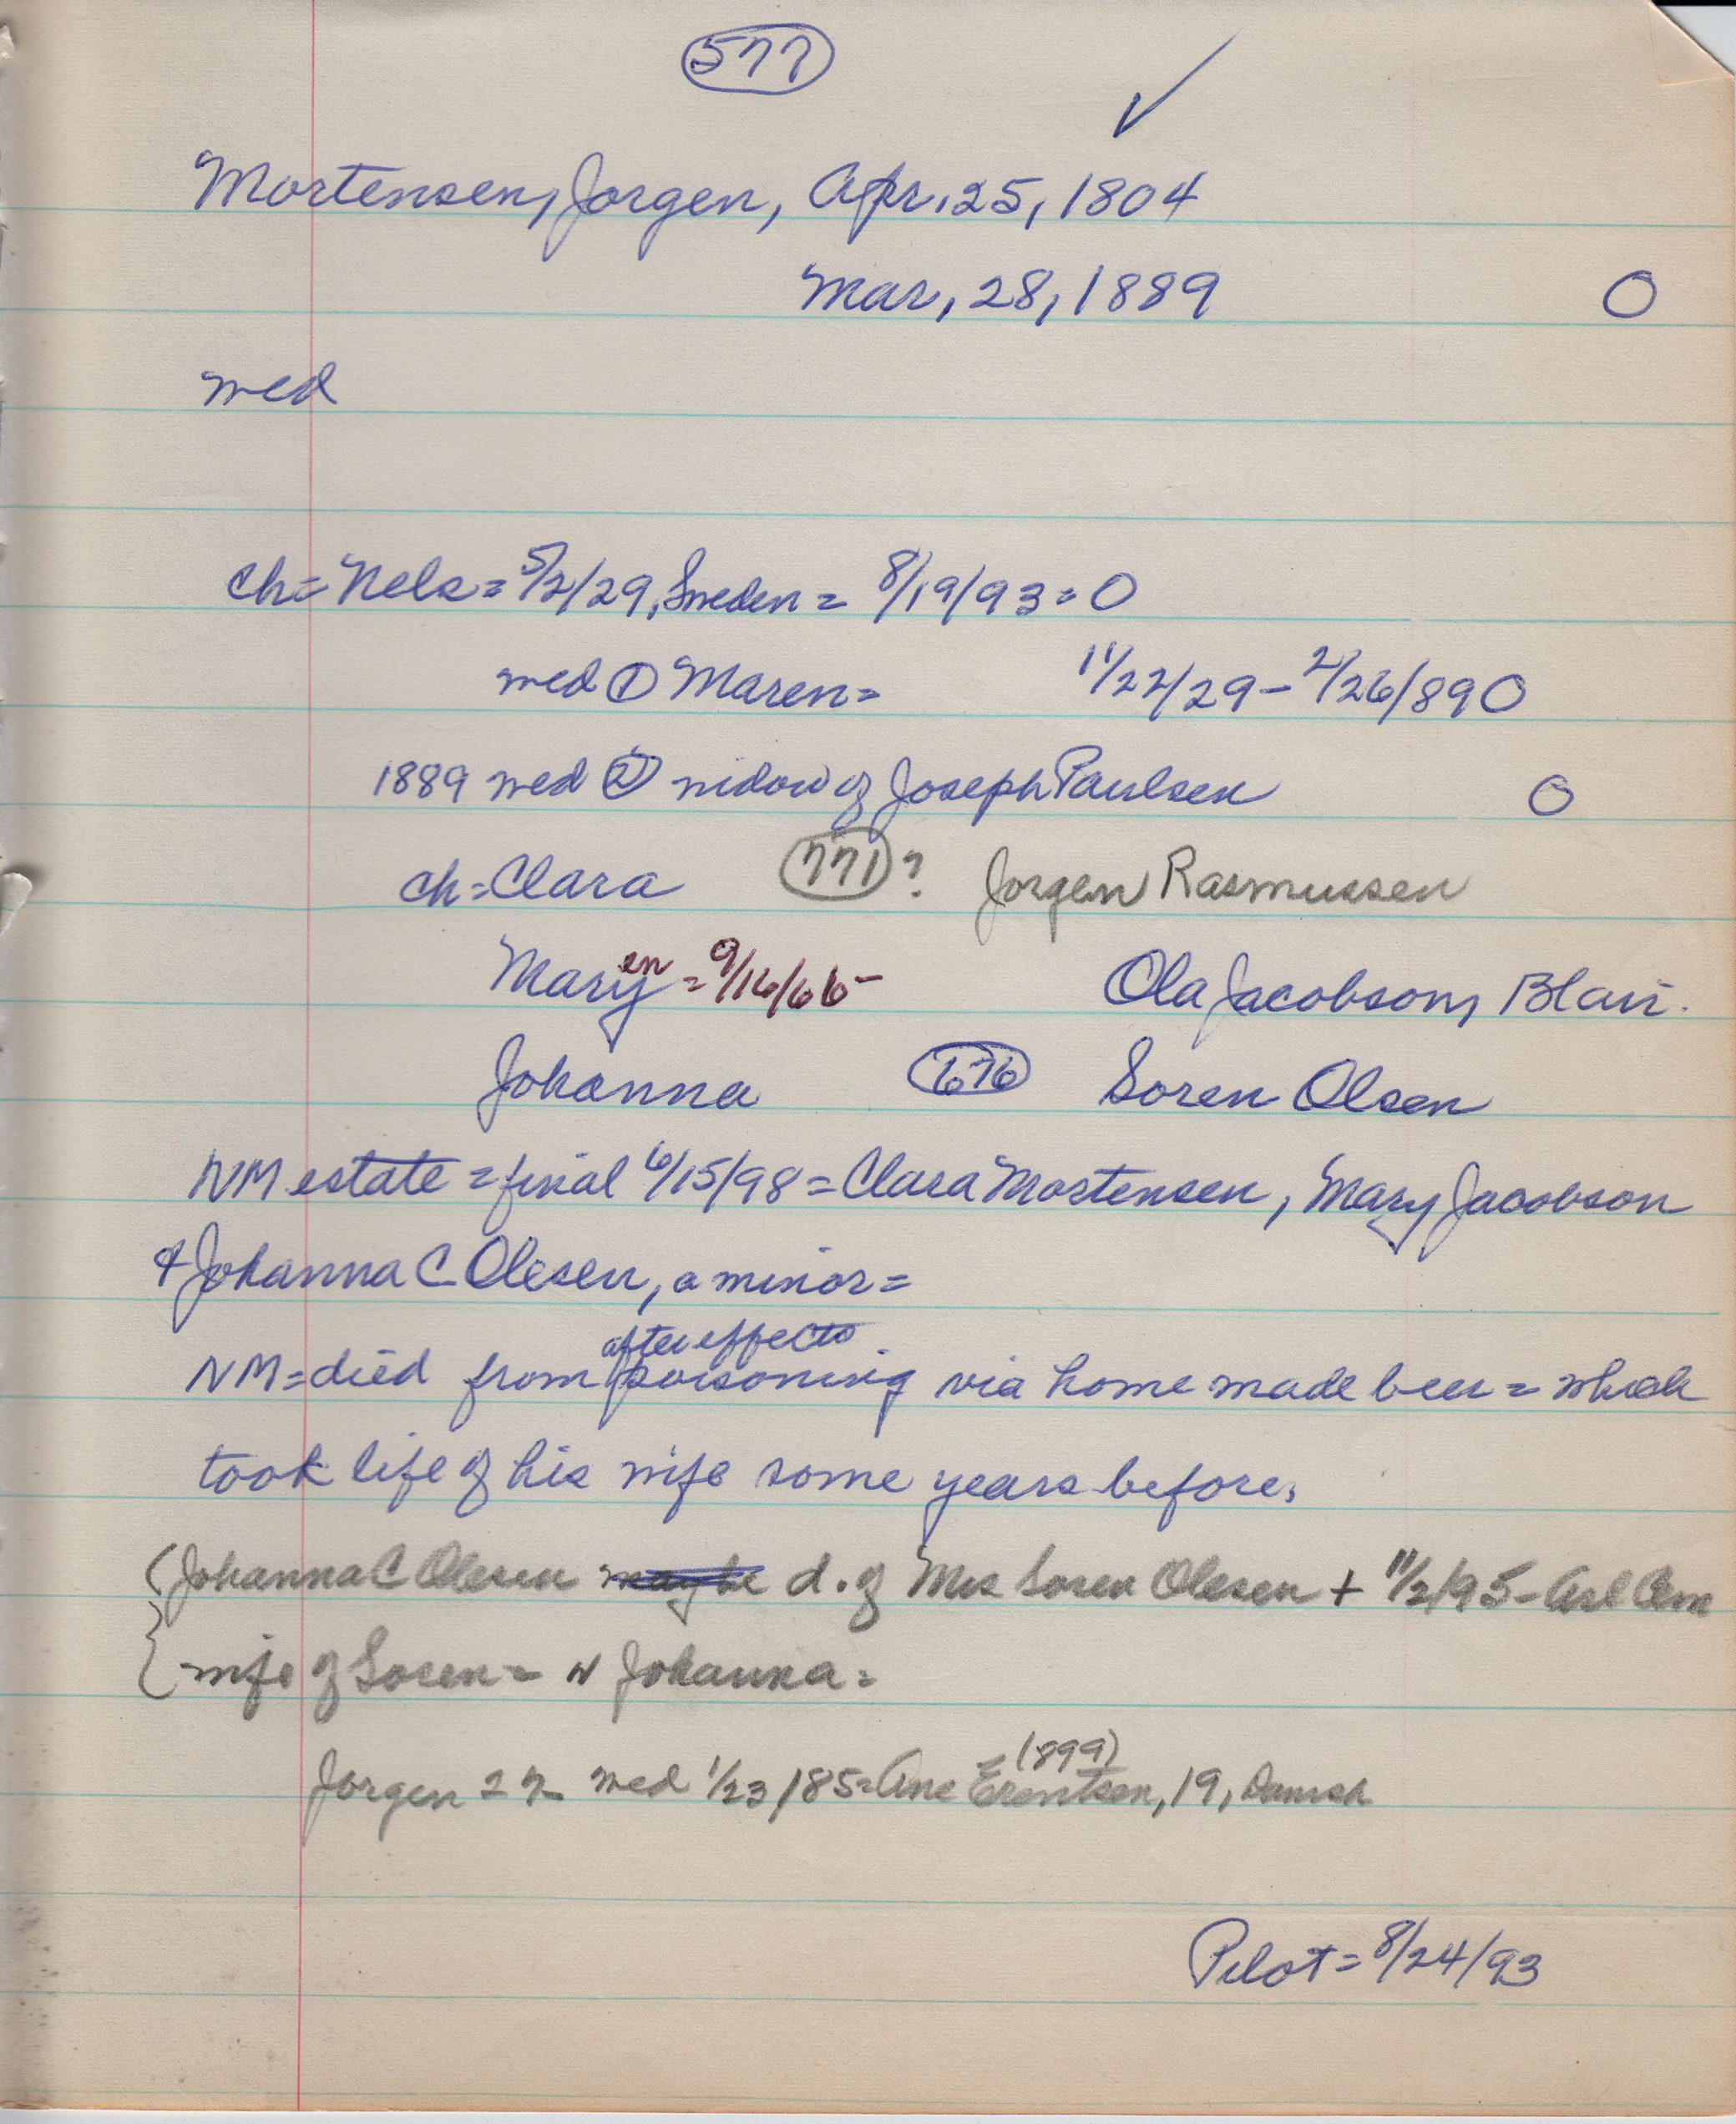 577
Mortensen, Jorgen, Apr. 25, 1804
Mar, 28, 1889 O
wed
ch = Nels = 5/2/29, Sweden = 8/19/93 = O
wed ① Maren = 11/22/29 - 2/26/89 O
1889 wed ② widow of Joseph Paulsen O
ch = Clara 771? Jorgen Rasmussen
Maryen = 9/16/66 - Ola Jacobson, Blair.
Johanna 676 Soren Olsen
NM estate = final 6/15/98 = Clara Mortensen, Mary Jacobson
& Johanna C Olesen, a minor =
after effects
NM = died from poisoning via home made beer = which
took life of his wife some years before.
(Johanna C Olesen maybe d. of Mrs Soren Olesen + 11/2/95 - Arl Cem
{ wife of Soren = N Johanna =
(899)
Jorgen 27 wed 1/23/85 = Ane Erentsen, 19, Danish
Pilot = 8/24/93